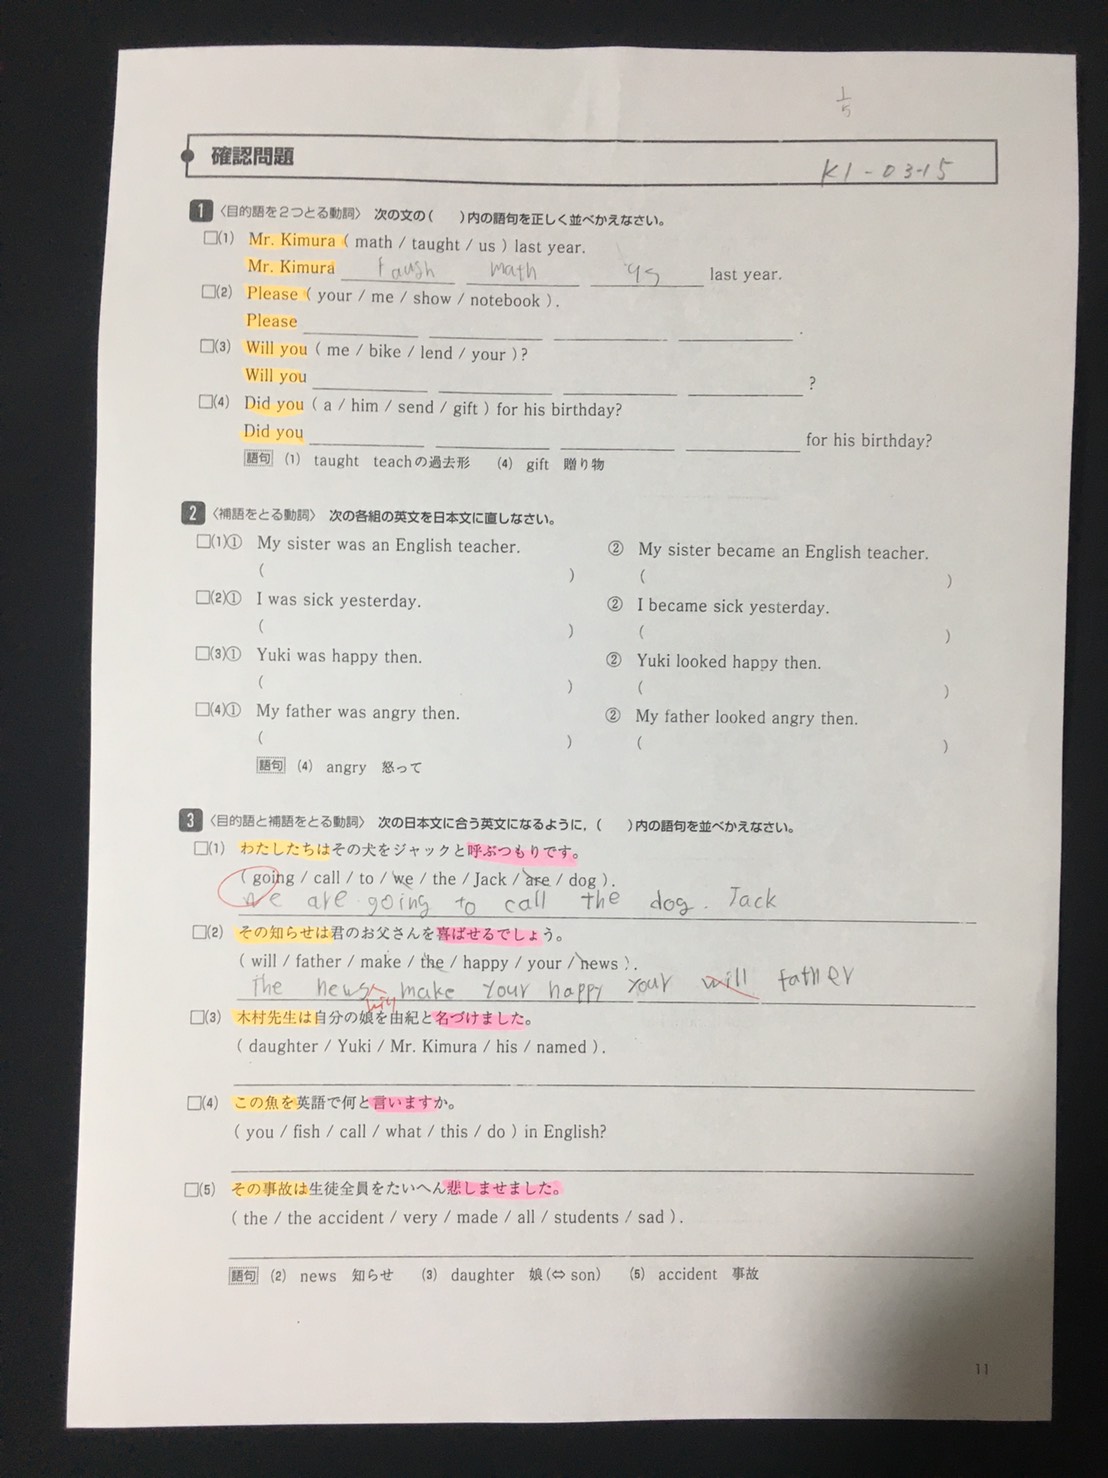 1/5
確認問題
K1-03-15
1 〈目的語を2つとる動詞〉 次の文の(　　)内の語句を正しく並べかえなさい。
□(1) Mr. Kimura ( math / taught / us ) last year.
Mr. Kimura taugh math us last year.
□(2) Please ( your / me / show / notebook ).
Please ____ ____ ____ ____ .
□(3) Will you ( me / bike / lend / your )?
Will you ____ ____ ____ ____ ?
□(4) Did you ( a / him / send / gift ) for his birthday?
Did you ____ ____ ____ ____ for his birthday?
語句 (1) taught teachの過去形 (4) gift 贈り物
2 〈補語をとる動詞〉 次の各組の英文を日本文に直しなさい。
□(1)① My sister was an English teacher. ② My sister became an English teacher.
(　　) (　　)
□(2)① I was sick yesterday. ② I became sick yesterday.
(　　) (　　)
□(3)① Yuki was happy then. ② Yuki looked happy then.
(　　) (　　)
□(4)① My father was angry then. ② My father looked angry then.
(　　) (　　)
語句 (4) angry 怒って
3 〈目的語と補語をとる動詞〉 次の日本文に合う英文になるように，(　　)内の語句を並べかえなさい。
□(1) わたしたちはその犬をジャックと呼ぶつもりです。
( going / call / to / we / the / Jack / are / dog ).
We are going to call the dog. Jack
□(2) その知らせは君のお父さんを喜ばせるでしょう。
( will / father / make / the / happy / your / news ).
The news make your happy your will father
□(3) 木村先生は自分の娘を由紀と名づけました。
( daughter / Yuki / Mr. Kimura / his / named ).
□(4) この魚を英語で何と言いますか。
( you / fish / call / what / this / do ) in English?
□(5) その事故は生徒全員をたいへん悲しませました。
( the / the accident / very / made / all / students / sad ).
語句 (2) news 知らせ (3) daughter 娘(⇔son) (5) accident 事故
11